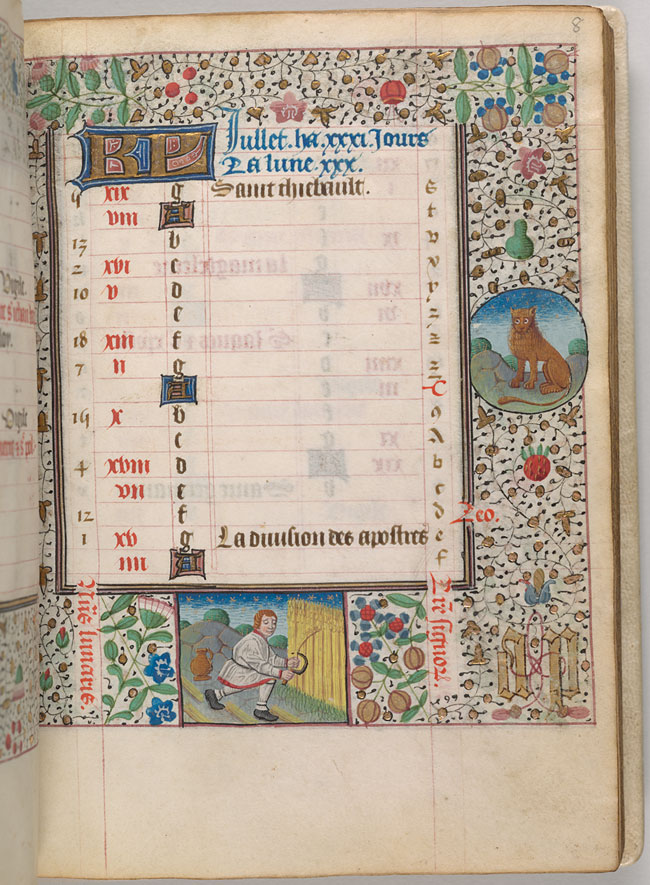 8
KL Jullet. ha .xxxi. Jours
La lune .xxx.
xix g Sainct thiebault. s
viii A t
17 b v
2 xvi c
10 v d y
e z
18 xiii f z
7 ii g z
A
x b 9
c A
4 xviii d b
vii e c
12 f d Leo.
1 xv g La diuision des apostres e
iiii A f
lunaris.
Duple